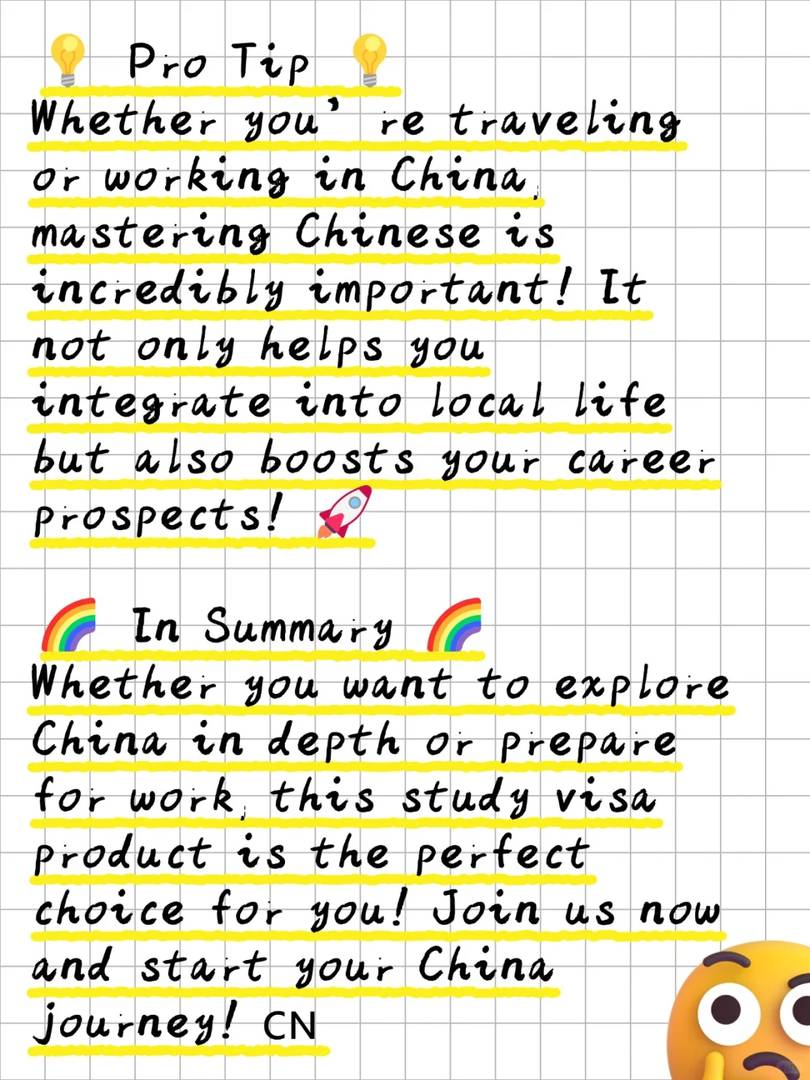 💡 Pro Tip 💡
Whether you’re traveling
or working in China,
mastering Chinese is
incredibly important! It
not only helps you
integrate into local life
but also boosts your career
prospects! 🚀
🌈 In Summary 🌈
Whether you want to explore
China in depth or prepare
for work, this study visa
product is the perfect
choice for you! Join us now
and start your China
journey! CN